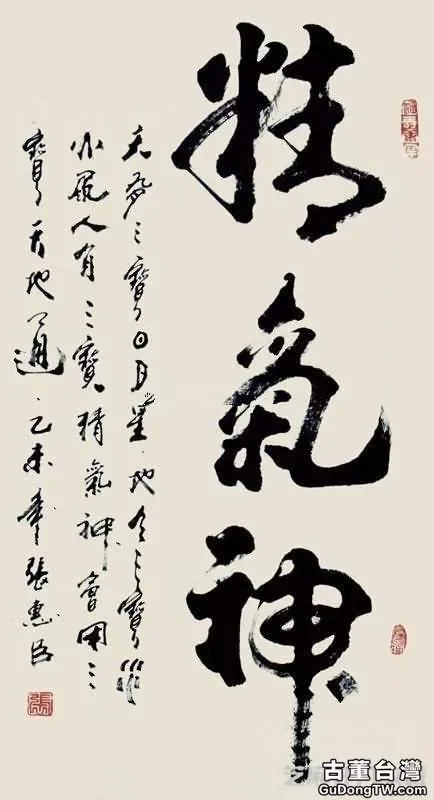 精氣神
天有三寶日月星地有三寶火
水風人有三寶精氣神會用三
寶天地通乙未年張惠臣
古董台灣
GuDongTW.com